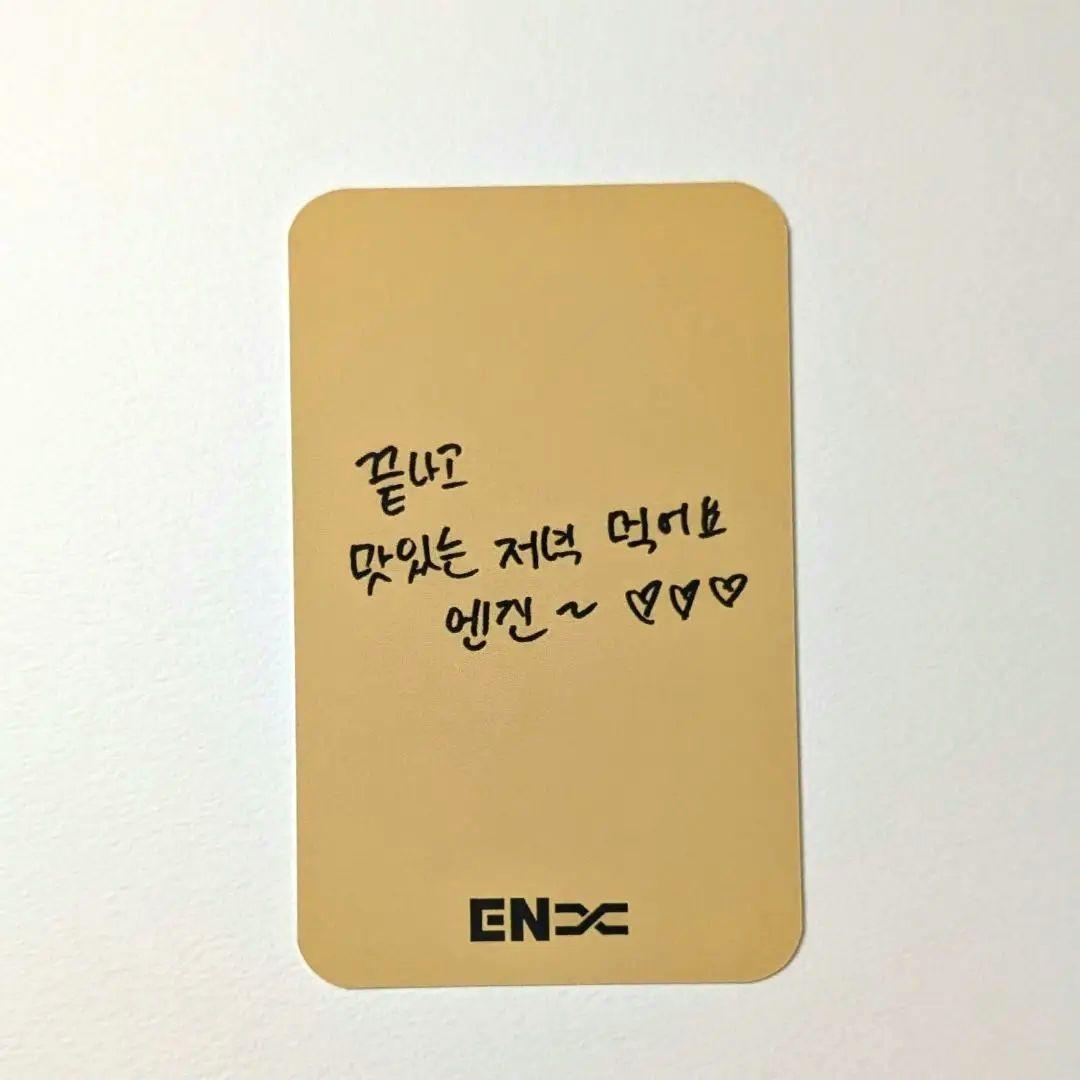 끝나고
맛있는 저녁 먹어요
엔진 ~ ♡♡♡
EN